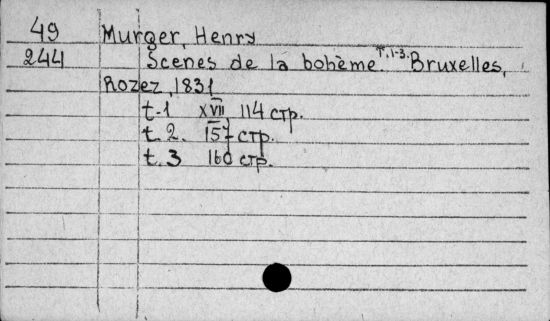 49 Murger, Henry
244 Scenes de la bohème. T.1-3. Bruxelles,
Rozez, 1831
t.1 XVII 114 стр.
t.2. 157 стр.
t.3 160 стр.